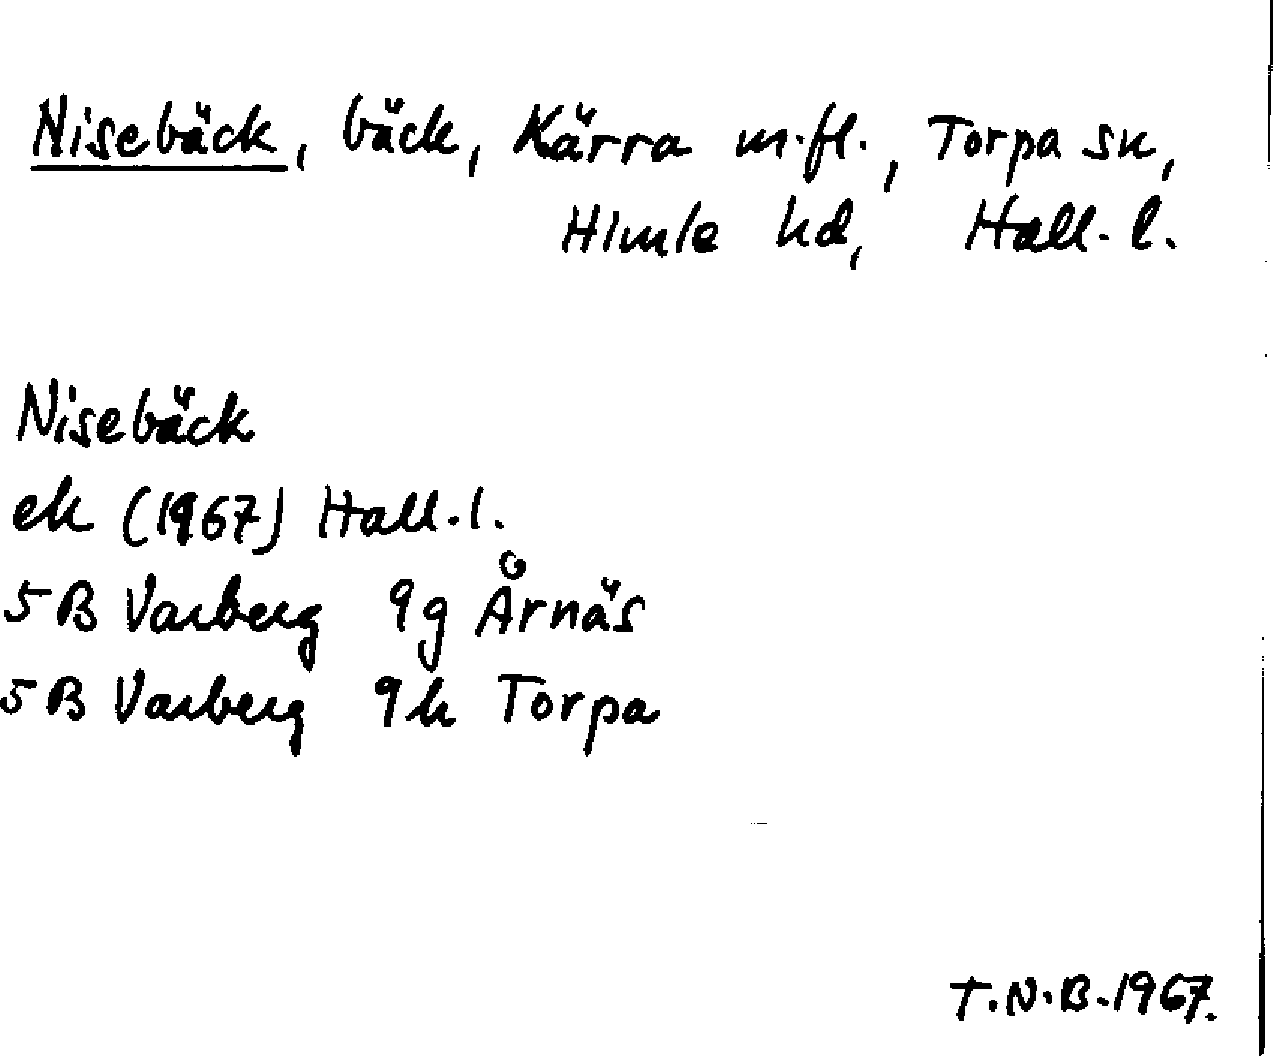 Nisebäck, bäck, Kärra m.fl., Torpa sn,
Himle hd, Hall. l.
Nisebäck
ek (1967) Hall. l.
5B Varberg 9g Årnäs
5B Varberg 9h Torpa
T.N.B. 1967.